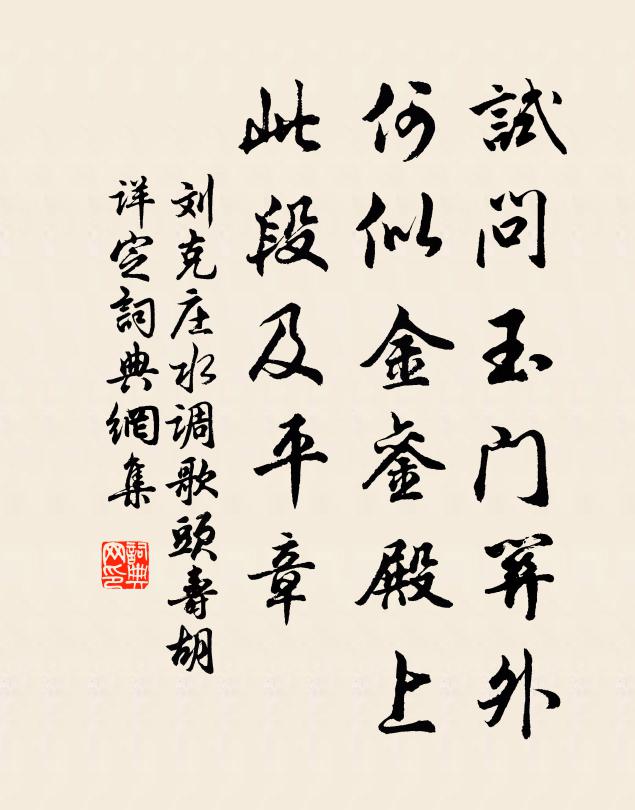 試問玉門關外
何似金銮殿上
此段及平章
刘克庄水调歌頭壽胡
详定詞典網集
詞典
网印